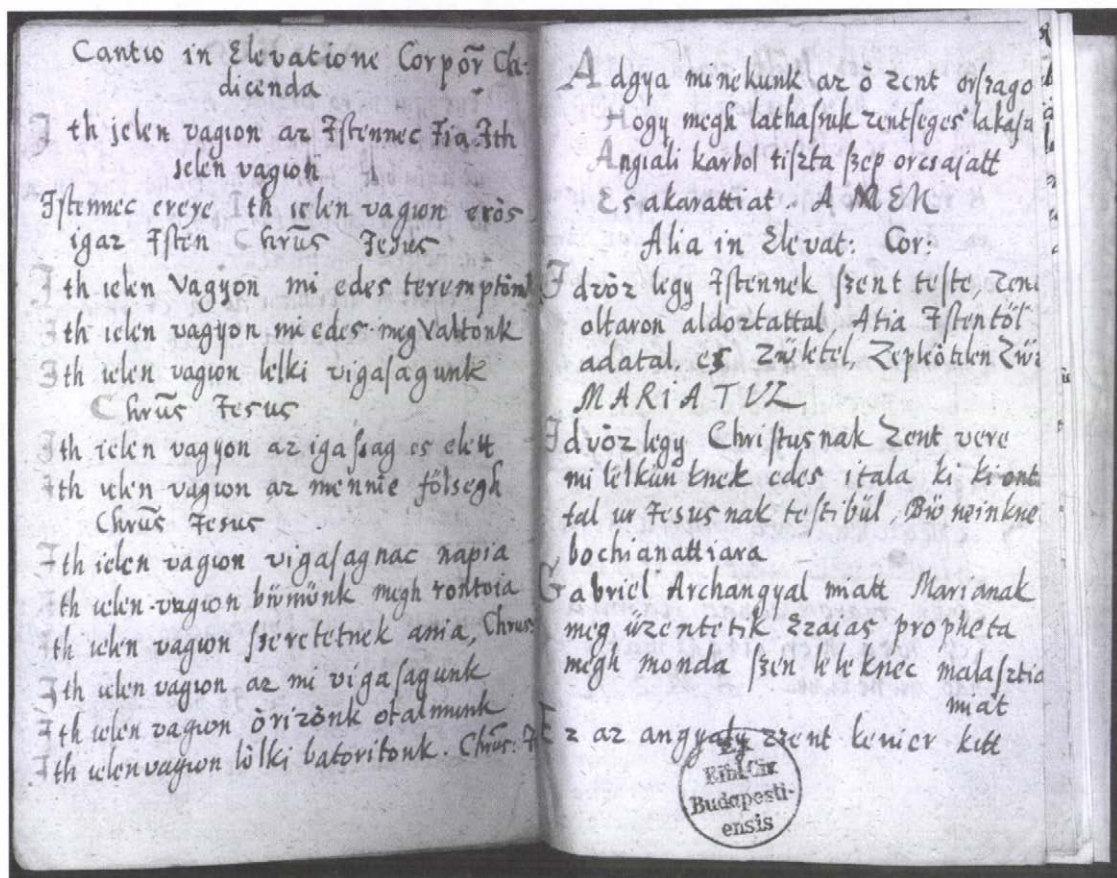 Cantio in Elevatione Corpōr Ch:
dicenda
Ith jelen vagion az Iſtennec Fia. Ith
jelen vagion
Iſtennec ereye Ith ielen vagion eròs
igaz Iſten Chrūs Jesus
Ith ielen vagyon mi edes teremptönk
Ith ielen vagyon mi edes meg valtonk
Ith ielen vagion lelki vigaſagunk
Chrūs Jesus
Ith ielen vagyon az igaſsag es elett
Ith ielen vagion az mennie fölsegh
Chrūs Jesus
Ith ielen vagion vigaſagnac napia
Ith ielen vagion bwnünk megh rontoia
Ith ielen vagion ſzeretetnek ania, Chrus:
Ith ielen vagion az mi vigaſagunk
Ith ielen vagion òrizònk otalmunk
Ith ielen vagion lòlki batoritonk. Chrūs:
Adgya minekunk az ò zent orſzago
Hogy megh lathaſsuk zentſeges lakaſa
Angiali karbol tiſzta ſzep orcsajatt
Es akarattiat. AMEN
Alia in Elevat: Cor:
Idvòz legy Iſtennek ſzent teſte, zent
oltaron aldoztattal, Atia Iſtentöl
adatal, es Zwletel, Zeplòtelen Zwz
MARIATVL
Idvòz legy Chriſtusnak Zent vere
mi lelkünknek edes itala ki ki ont
tal ur Jesusnak teſtibül, Bwneinkne
bochianattiara
Gabriel Archangyal miatt Marianak
meg üzentetik Ezaias propheta
megh monda ſzen leleknec malaſztia
miat
Ez az angyaly zzent kenier kitt
Budapesti-
ensis